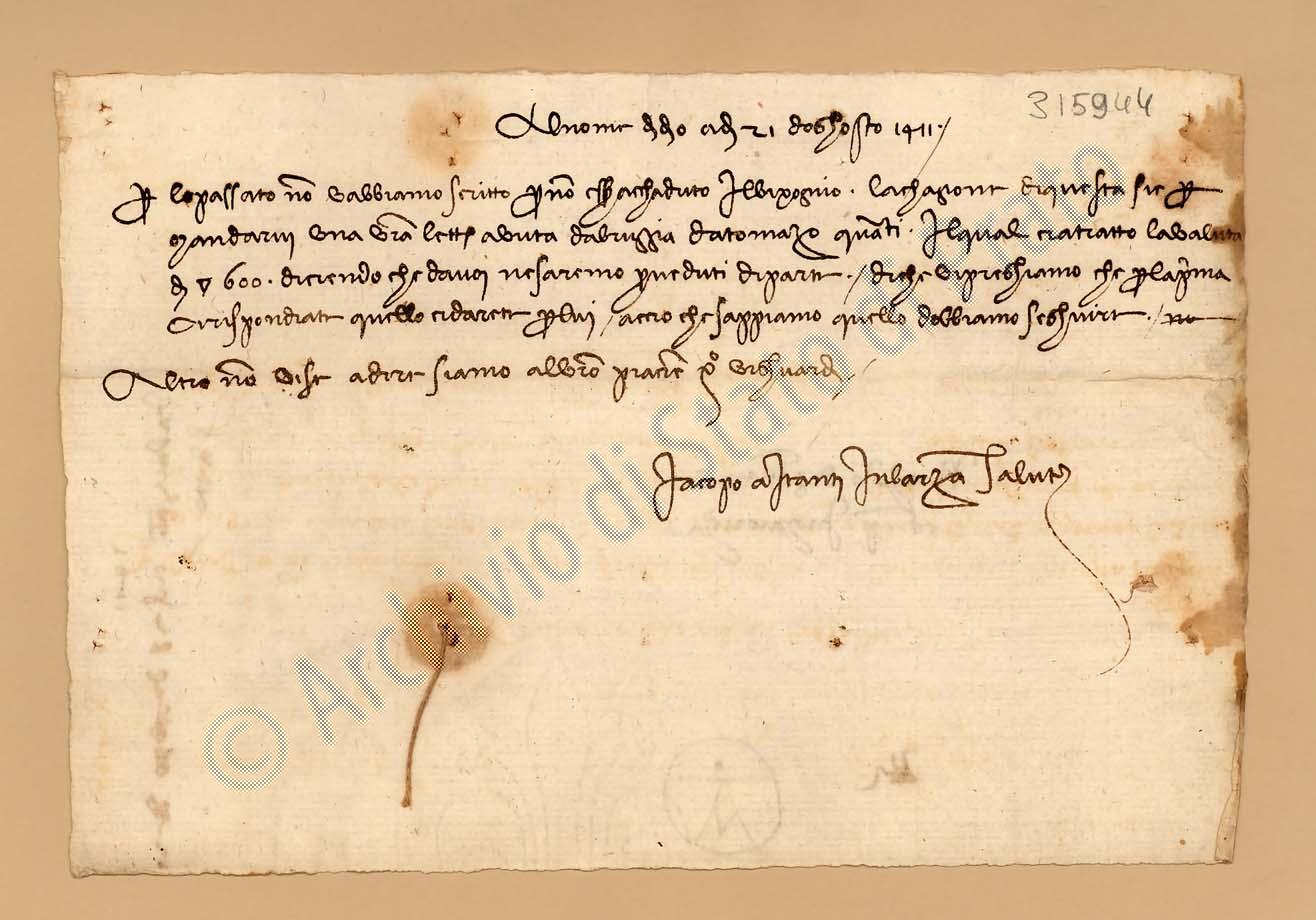 315944
Al nome ddo ad 21 doghosto 1411
P lo passato nō vabbiamo scritto p nō chachaduto il bixognio. la chagione di questa sie p
mandarvi una vrā lettr avuta da brugia da tomaxo quāti. Il qual ci a tratto la valuta
d ▽ 600. dicendo che da voi ne saremo proveduti di parte / di che vi preghiamo che p la prima
ci rispondiate quello ci darete p lui / accio che sappiamo quello dobbiamo seghuire /
Altro nō vise a dire siamo al vrō piacre xo vi ghuardi
Jacopo astanti In barza salute
© Archivio di Stato di Prato